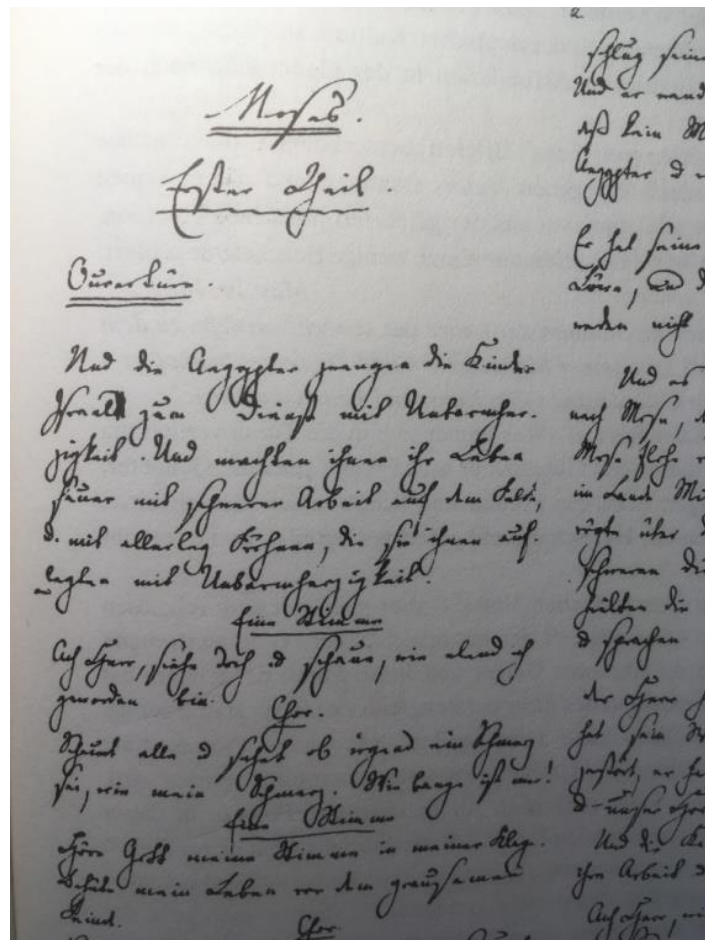 Moses.
Erster Theil.
Ouverture.
Und die Aegypter zwangen die Kinder
Israel zum Dienst mit Unbarmher-
zigkeit. Und machten ihnen ihr Leben
sauer mit schwerer Arbeit auf dem Felde,
d. mit allerley Fröhnen, die sie ihnen auf-
legten mit Unbarmherzigkeit.
Eine Stimme
Ach Herr, siehe doch d schaue, wie elend ich
geworden bin.
Chor.
Schaut alle d sehet ob irgend ein Schmerz
sei, wie mein Schmerz. Wie bange ist mir!
Eine Stimme
Höre Gott meine Stimme in meiner Klage.
Behüte mein Leben vor dem grausamen
Feinde.
Chor.
2
schlug seine
Und er
daß kein
Aegypter d
Er hat seine
Löwe, und
werden nicht
Und es
nach Mose,
Mose flohe
im Lande
über
schweren
die
d sprachen
der Herr
hat sein
zerstört, er
d unser
Und die
ihre Arbeit d
Ach Herr,